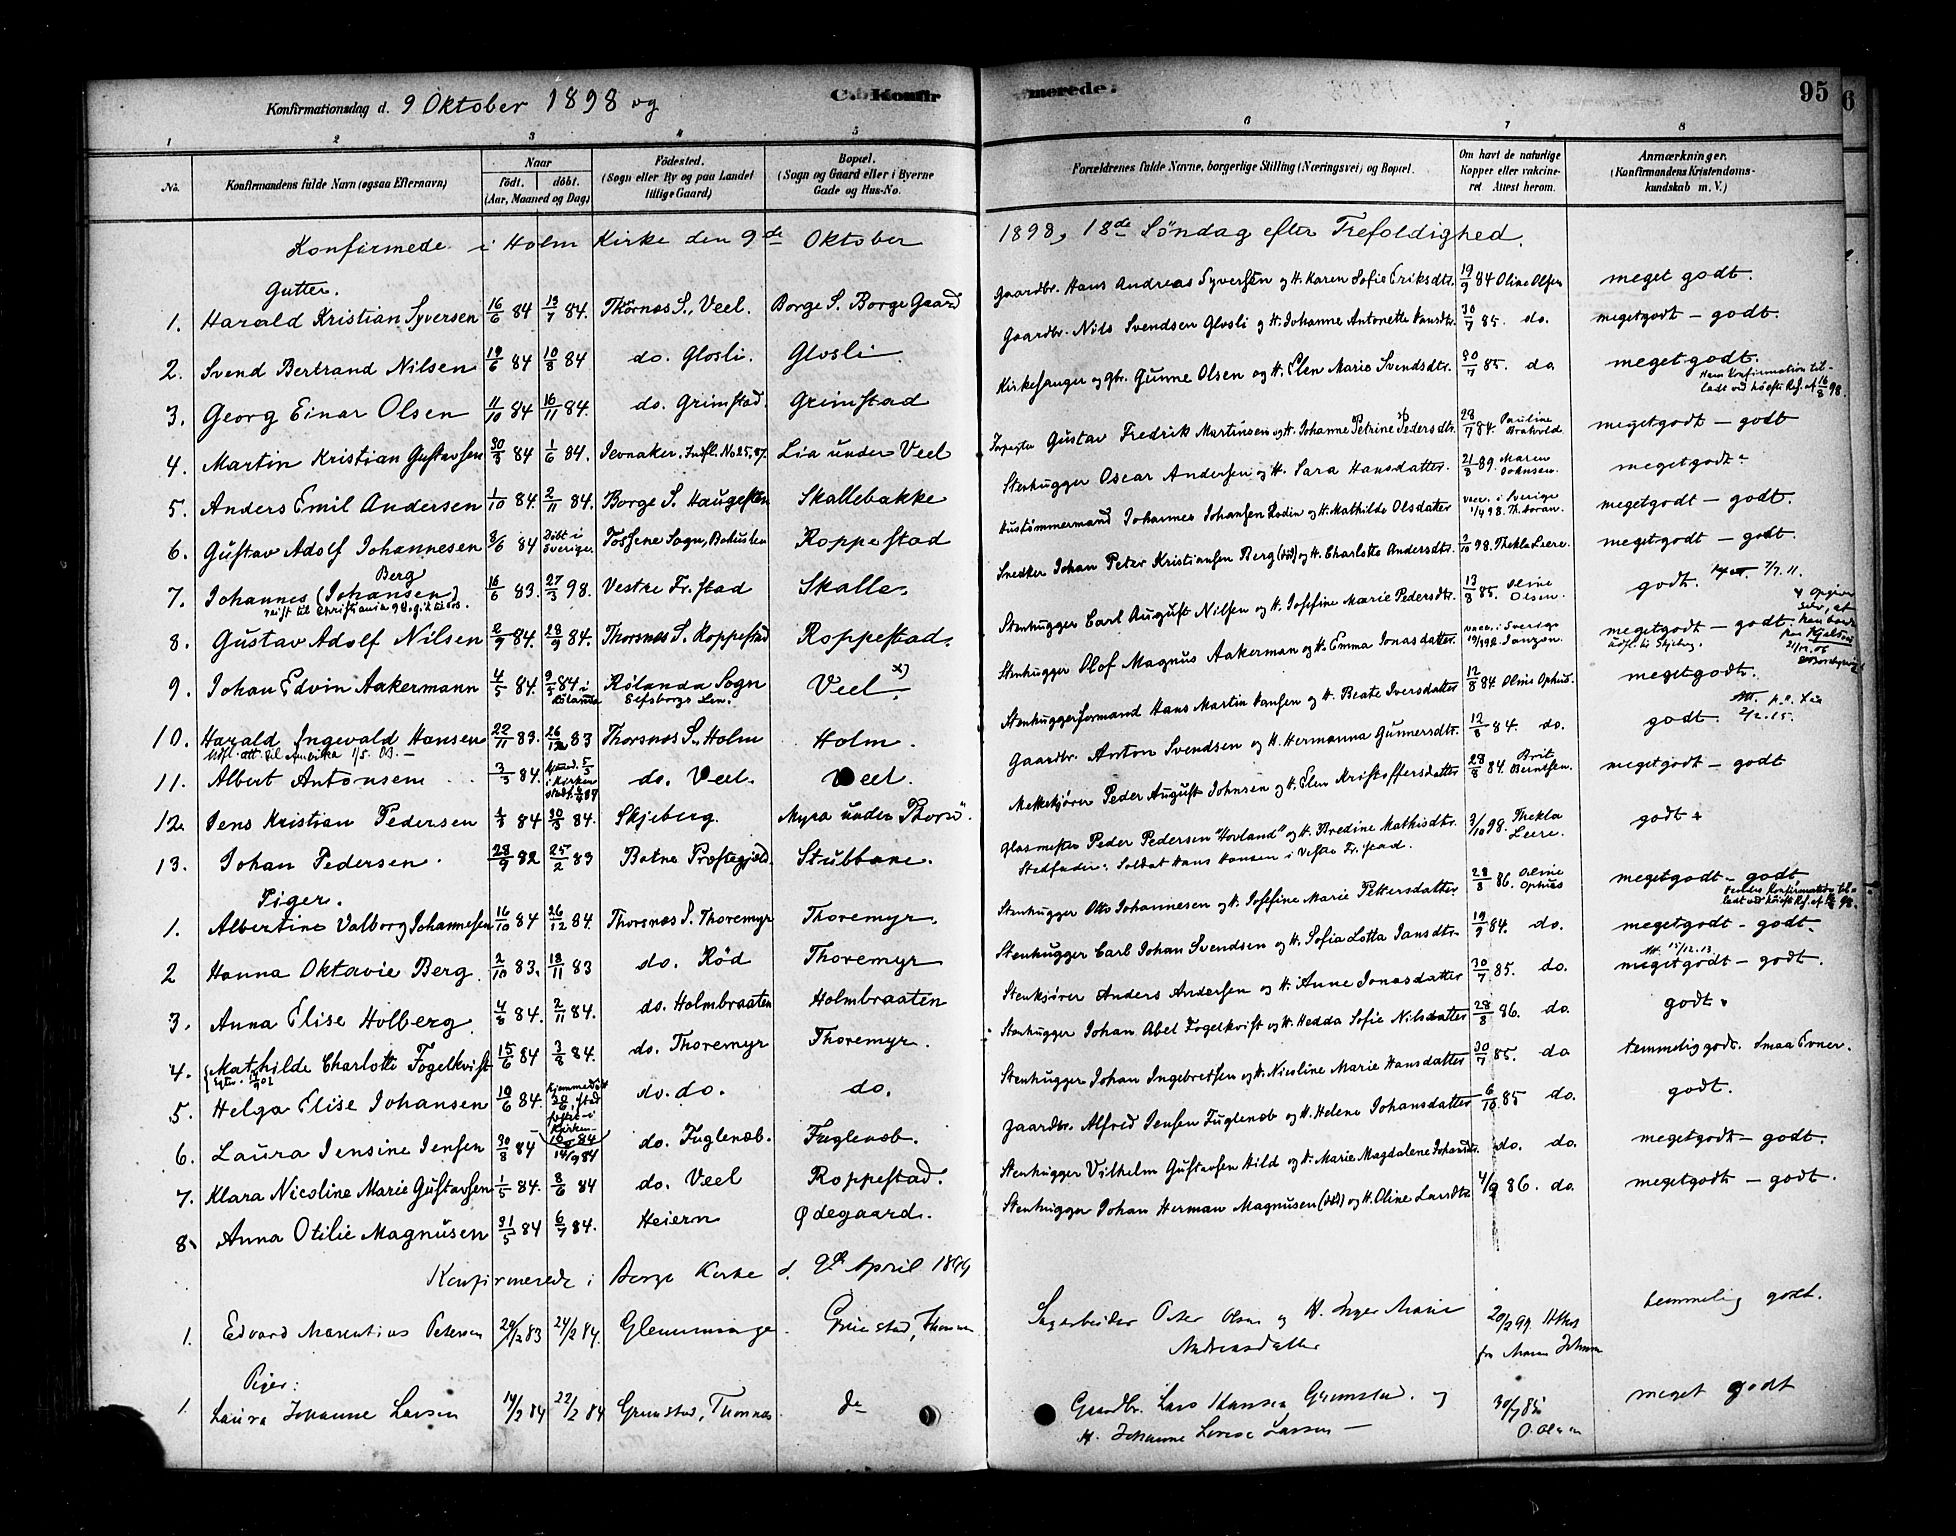 Konfirmationsdag d. 9 Oktober 1898 og
C. Konfir
merede.
95
6
1 2 3 4 5 6 7 8
No. Konfirmandens fulde Navn (ogsaa Efternavn)
Naar
födt. döbt.
(Aar, Maaned og Dag)
Födested.
(Sogn eller By og paa Landet
tillige Gaard)
Bopæl.
(Sogn og Gaard eller i Byerne
Gade og Hus-No.
Forældrenes fulde Navne, borgerlige Stilling (Næringsvei) og Bopæl.
Om havt de naturlige
Kopper eller vakcine-
ret. Attest herom.
Anmærkninger.
(Konfirmandens Kristendoms-
kundskab m. V.)
Konfirmede i Holm Kirke den 9de Oktober 1898, 18de Söndag efter Trefoldighed.
Gutter.
1. Harald Kristian Syversen 16/6 84 13/7 84. Thorsnæs S., Veel. Borge S. Borge Gaard Gaardbr. Hans Andreas Syversen og H. Karen Sofie Eriksdtr. 19/9 84 Oline Olsen meget godt.
2. Svend Bertrand Nilsen 19/6 84 10/8 84 do. Glosli. Glosli. Gaardbr. Nils Svendsen Glosli og H. Johanne Antonette Hansdtr. 30/7 85. do. megetgodt - godt.
3. Georg Einar Olsen 11/10 84 16/11 84. do. Grimstad. Grimstad Kirkesanger og Gbr. Gunne Olsen og H. Elen Marie Svendsdtr. 30/7 85. do megetgodt.
Hans Konfirmation til-
ladt ved höiests Res. af 16/8 98.
4. Martin Kristian Gustavsen 30/3 84 1/6 84. Jevnaker. Indfl. No 25, 87. Lia under Veel Gustav Fredrik Martinsen og H. Johanne Petrine Pedersdtr. 28/7 84. Pauline Brahold. megetgodt - godt
5. Anders Emil Andersen 1/10 84. 2/11 84. Borge S. Haugesten Skallebakke Stenhugger Oscar Andersen og H. Sara Hansdatter. 21/8 89. Maren Johnsen. megetgodt.
6. Gustav Adolf Johannesen 3/6 84 Döbt i Sverige. Tossene Sogn, Bohuslen Roppestad Hustömmermand Johannes Johansen Rodin og H. Mathilde Olsdatter vacc. i Sverige 1/4 98. Th. Loran. megetgodt - godt.
7. Johannes (Johansen) Berg 16/6 83. 27/3 98. Vestre Fr. stad Skalle. Snedker Johan Peter Kristiansen Berg (död) og H. Charlotte Andersdtr. 3/10 98. Thekla Leere. megetgodt - godt.
8. Gustav Adolf Nilsen 2/9 84. 28/9 84. Thorsnæs S. Roppestad Roppestad. Stenhugger Carl August Nilsen og H. Josefine Marie Pedersdtr. 13/8 85. Oline Olsen. godt. 7/7. 11.
9. Johan Edvin Aakermann 4/5 84. 9/5 84 i Rölanda Rölanda Sogn
Elfsborgs Len. Veel x) Stenhugger Olof Magnus Aakerman og H. Emma Jonasdatter. vacc. i Sverige Janzon. megetgodt - godt.
10. Harald Ingevald Hansen 22/11 83. 26/12 83 Thorsnæs S., Holm Holm. Stenhuggerformand Hans Martin Hansen og H. Beate Iversdatter 12/8 84. Oline Ophus. megetgodt.
Udfl. att. til Amerika 1/5.
11. Albert Antonsen 3/3 84. i Kirken do. Veel. Veel. Gaardbr. Anton Svendsen og H. Hermanna Gunnersdtr. 12/8 84. do. godt. 2/12. 15.
12. Jens Kristian Pedersen 4/3 84 30/3 84. Skjeberg. Myra under Thorsö. Melkekjörer Peder August Johnsen og H. Elen Kristoffersdatter 28/8 84. Berntsen. megetgodt - godt
13. Johan Pedersen. 28/9 82 25/2 83 Botne Præstegjeld. Stubbene. Glasmester Peder Pedersen "Hovland" og H. Bredine Mathisdtr. 3/10 98. Thekla Leere. godt.
Stedfader: Soldat Hans Hansen i Vestre Fr. stad.
Piger.
1. Albertine Valborg Johannesen 16/10 84 26/12 84. Thorsnæs S. Thoremyr Thoremyr. Stenhugger Otto Johannesen og H. Josefine Marie Pettersdatter 28/8 86. Oline Ophus megetgodt - godt
Hendes Konfirmation til-
ladt ved höiests Res. af 98.
2 Hanna Oktavie Berg. 2/10 83. 18/11 83 do. Röd Thoremyr Stenhugger Carl Johan Svendsen og H. Sofia Lotta Jansdtr. 19/9 84. do. megetgodt - godt.
3. Anna Elise Holberg 4/8 84. 2/11 84. do. Holmbraaten Holmbraaten Stenkjörer Anders Andersen og H. Anne Jonasdatter 30/7 85. do. megetgodt - godt.
4. Mathilde Charlotte Fogelkvist 15/6 84 3/8 84. do. Thoremyr Thoremyr. Stenhugger Johan Abel Fogelkvist og H. Hedda Sofie Nilsdatter 28/8 86. do. godt.
5. Helga Elise Johansen 19/6 84. Hjemmedöbt do. do. do. Stenhugger Johan Ingebretsen og H. Nicoline Marie Hansdatter 30/7 85. do temmelig godt. Smaa Evner.
6. Laura Jensine Jensen 30/8 84 14/9 84 do. Fuglenæb. Fuglenæb. Gaardbr. Alfred Jensen Fuglenæb og H. Helene Johansdatter 6/10 85 do. godt.
7. Klara Nicoline Marie Gustavsen 1/5 84. 8/6 84 do. Veel Roppestad. Stenhugger Vilhelm Gustavsen Hild og H. Marie Magdalene Johansdtr. do. do. megetgodt - godt.
8. Anna Otilie Magnusen 31/5 84 6/7 84. Heiern Ödegaard. Stenhugger Johan Herman Magnusen (död) og H. Oline Larsdtr 4/9 86. do. megetgodt - godt.
Konfirmerede i Borge Kirke d. April 1899
1. Edvard Marentius Petersen 29/12 83 24/2 84. Glemminge Grimstad, Thorsnæs Sagarbeider Olsen og H. Inger Marie
Andreasdatter 20/2 99. Attest
fra temmelig godt.
Piger:
1. Laura Johanne Larsen 14/2 84 22/2 84 Grimstad, Thorsnæs do Gaardbr. Lars Hansen Grimstad. og
H. Johanne Larsen - 30/7 85
O. Olsen meget godt